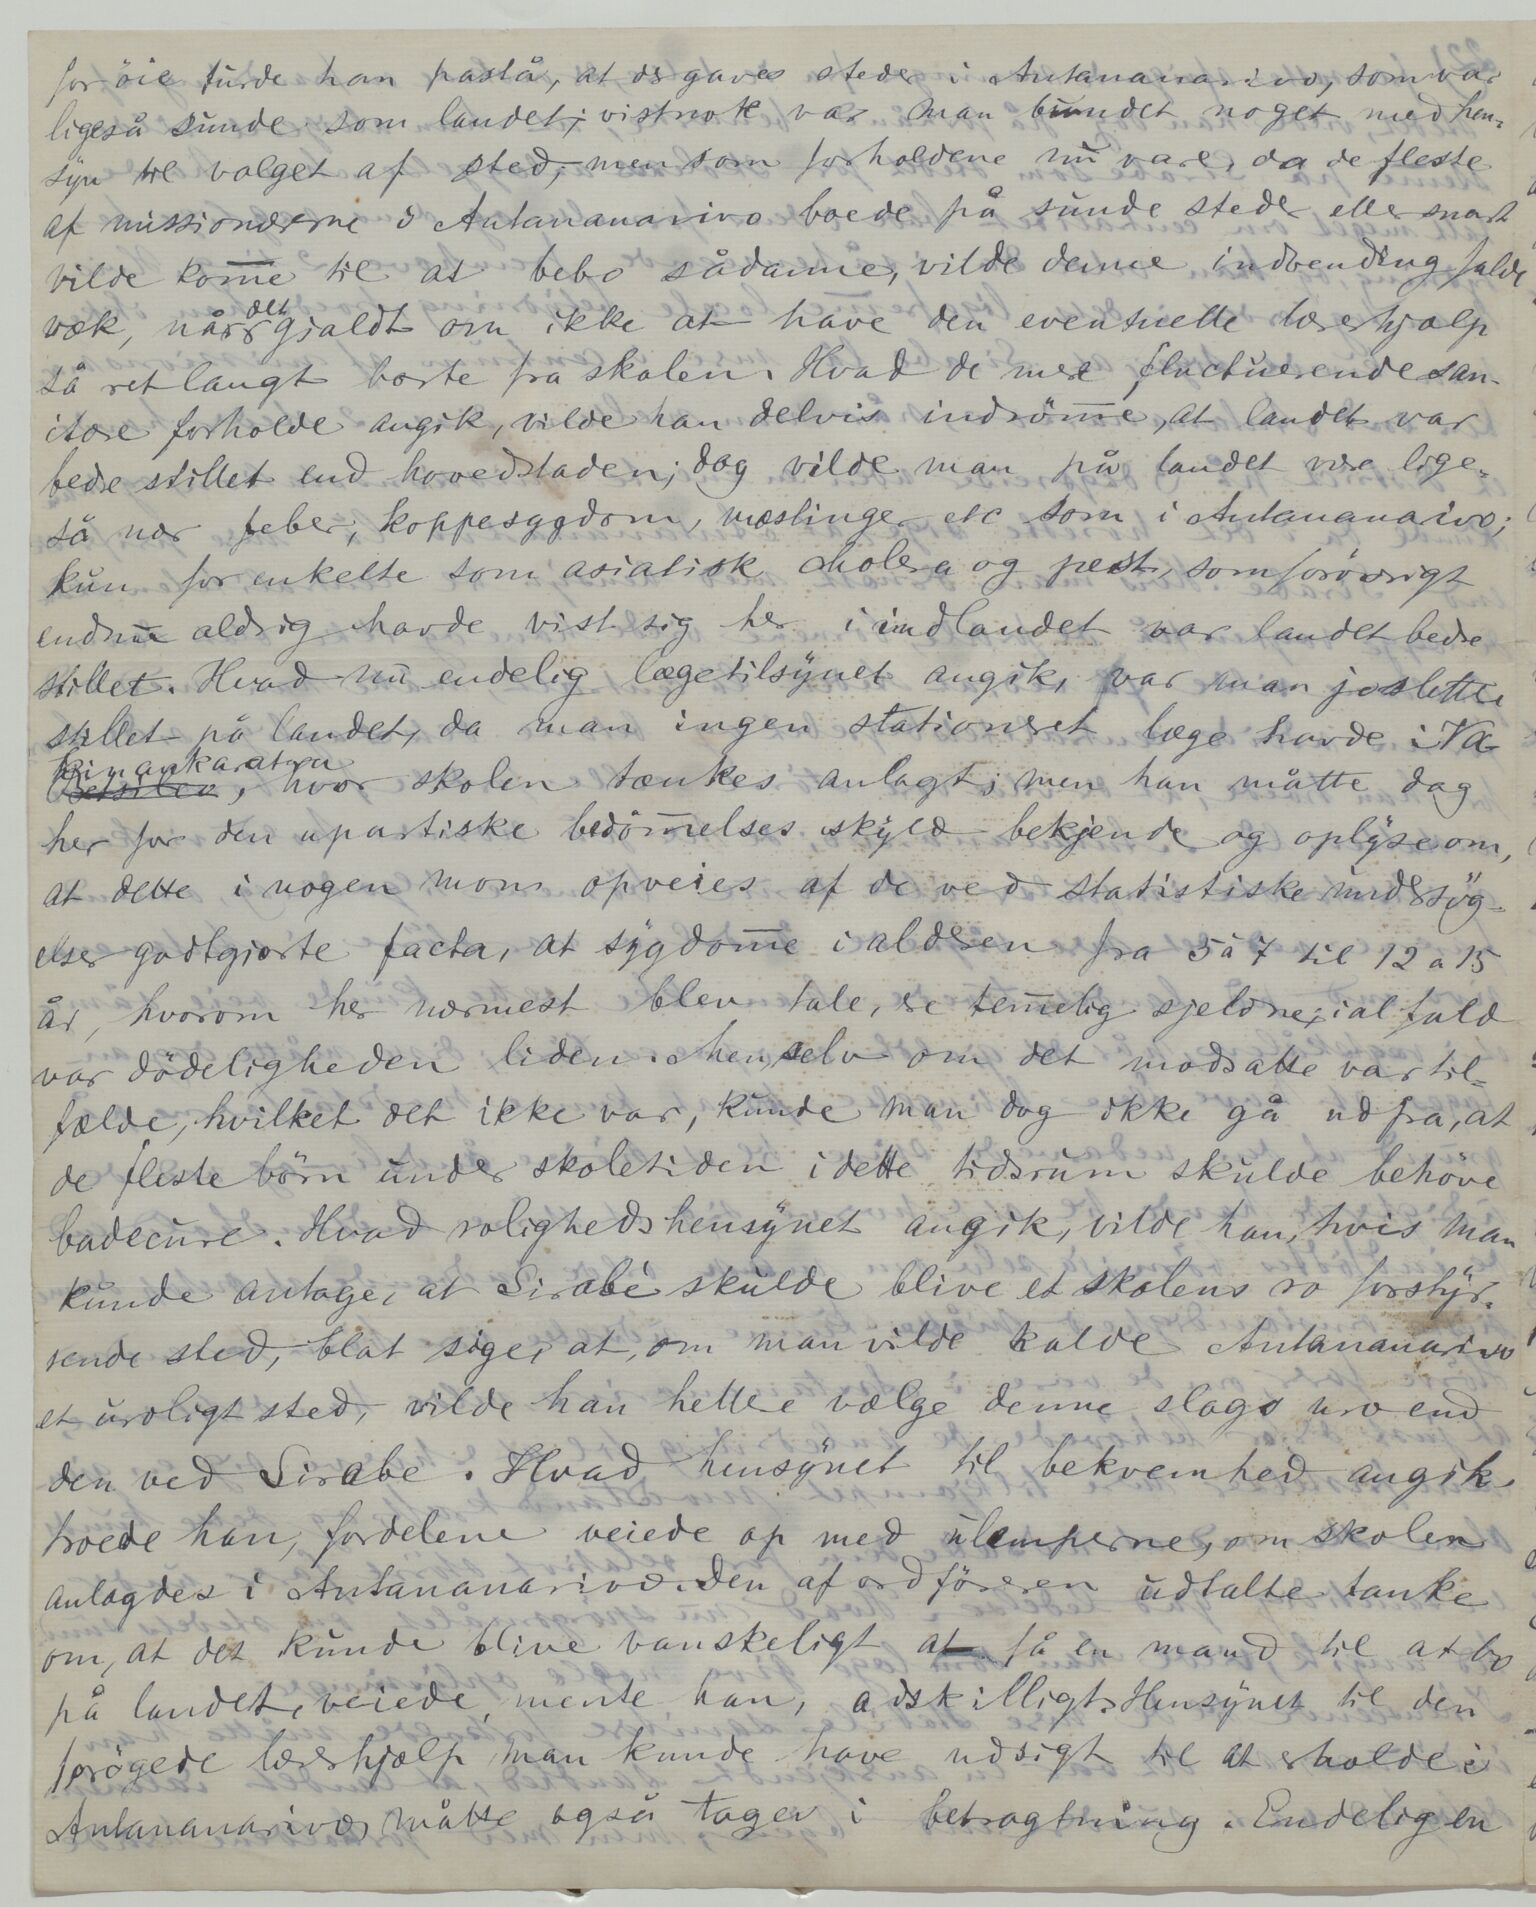 for öie turde han pastå, at der gaves steder i Antananarivo, som var
ligeså sunde som landet; vistnok var man bundet noget med hen-
syn til valget af sted, men som forholdene nu vare, da de fleste
af missionærerne i Antananarivo boede på sunde steder eller snart
vilde kom̅e til at bebo sådanne, vilde denne indvending falde
væk, når det gjaldt om ikke at have den eventuelle lærerhjælp
så ret langt borte fra skolen. Hvad de mere fluctuerende san-
itære forholde angik, vilde han delvis indröm̅e, at landet var
bedre stillet end hovedstaden; dog vilde man på landet være lige-
så nær feber, koppesygdom, mæslinger etc som i Antananarivo;
kun for enkelte som asiatisk cholera og pest, som forövrigt
endnu aldrig havde vist sig her i indlandet var landet bedre
stillet. Hvad nu endelig lægetilsynet angik, var man jo slettere
stillet på landet, da man ingen stationeret læge havde i Va-
kinankaratra
Betsileo, hvor skolen tænkes anlagt; men han måtte dog
her for den upartiske bedöm̅elses skyld bekjende og oplyse om,
at dette i nogen mon opveies af de ved statistiske undersög-
elser godtgjorte facta, at sygdom̅e i alderen fra 5 à 7 til 12 a 15
år, hvorom her nærmest blev tale, ere tem̅elig sjeldne, ialfald
var dödeligheden liden. Men, selv om det modsatte var til-
fælde, hvilket det ikke var, kunde man dog ikke gå ud fra, at
de fleste börn under skoletiden i dette tidsrum skulde behöve
badecure. Hvad rolighedshensynet angik, vilde han, hvis man
kunde antage, at Sirabé skulde blive et skolens ro forstyr-
rende sted, blot sige, at, om man vilde kalde Antananarivo
et uroligt sted, vilde han hellere vælge denne slags uro end
den ved Sirabe. Hvad hensynet til bekvemhed angik,
troede han, fordelene veiede op med ulemperne, om skolen
anlagdes i Antananarivo. Den af ordföreren udtalte tanke
om, at det kunde blive vanskeligt at få en mand til at bo
på landet, veiede, mente han, adskilligt. Hensynet til den
forögede lærerhjælp man kunde have udsigt til at erholde i
Antananarivo, måtte også tages i betragtning. Endelig en